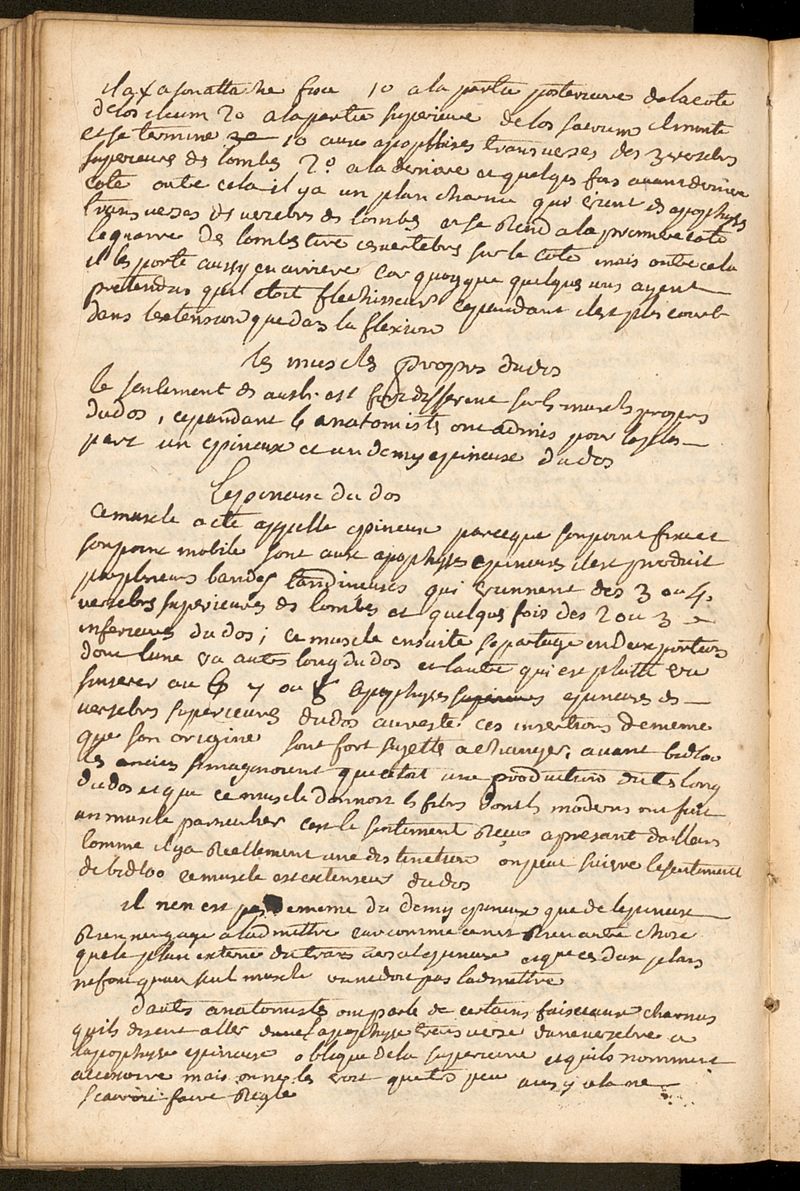 il a son attache fixe 1o a la partie posterieure de la cote
de los ileum 2o a la partie superieure de los sacrum il monte
et se termine 1o aux apophises transverses des 3 vertebres
superieures des lombes 2o a la derniere et quelques fois avant derniere
cote outre cela il y a un plan charnu qui vient des apophyses
transverses des vertebres des lombes et se rend a la premiere cote
le quarré des lombes tire ces vertebres sur le coté mais outre cela
il les porte aussy en arriere car quoyque quelques uns ayent
pretendus quil etoit flechisseur cependant il est plus court
dans lextension que dans la flexion
les muscles propres du dos
le sentiment des auth. est fort different sur les muscles propres
du dos, cependant les anatomistes ont admis pour la plus
part un epineux et un demy epineux du dos
Lepineux du dos
ce muscle a eté appellé epineux parceque son point fixe et
son point mobile sont aux apophyses epineuses il est produit
par plusieurs bandes tendineuses qui viennent des 3 ou 4
vertebres superieures des lombes et quelques fois des 2 ou 3
inferieures du dos; ce muscle ensuite se partage en deux portions
dont lune va au tres long du dos et lautre qui est plutot va
sinserer au 6 7 ou 8 apophyses superieures epineuses des
vertebres superieures du dos au reste ces insertions de meme
que son origine sont fort sujettes a changer, avant bidloo
les anciens simaginoient que cetoit une production du tres long
du dos et que ce muscle donnoit les fibres dont les modernes ont fait
un muscle particulier cest le sentiment reçu apresant dailleurs
comme il y a reellement une distinction on peut suivre le sentiment
de bidloo ce muscle est extenseur du dos
il nen est pas de meme du demy epineux que de lepineux
rien nengage a ladmettre car comme ce nest rien autre chose
que le plan externe du transversal epineux et que ces deux plans
ne font quun seul muscle on ne doit pas ladmettre
dautres anatomistes ont parlé de certains faisceaux charnus
quils disent aller de lapophyse transverse dune vertebre a
lapophyse epineuse oblique de la superieure et quils nomment
accessoire mais on ne les voit que tres peu
scavoir faire regle